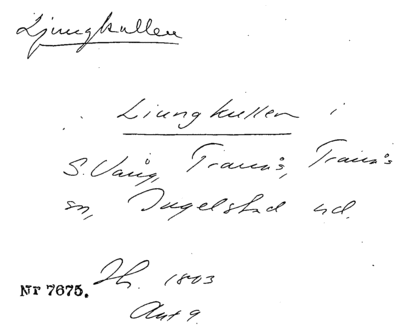 Ljungkullen
Liungkullen i
S. Vång, Tranås, Tranås
sn, Ingelstad hd.
Sk. 1803
Nr 7675.
Akt 9